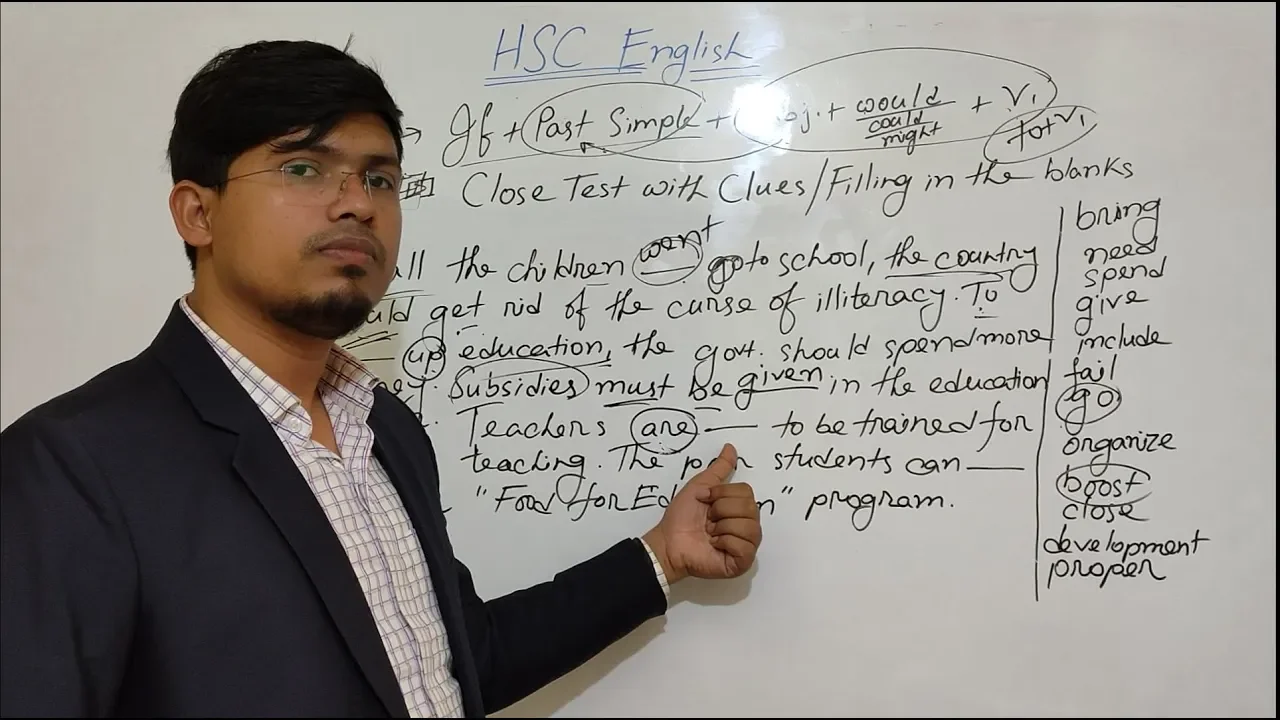 HSC English
→ If + Past Simple + + would/could/might + V1
to+V1
Close Test with Clues/Filling in the blanks
all the children went go to school, the country
get rid of the curse of illiteracy. To
up education, the govt. should spend more
Subsidies must be given in the education
Teachers are — to be trained for
teaching. The students can —
"Food for program.
bring
need
spend
give
include
fail
go
organize
boost
close
development
proper